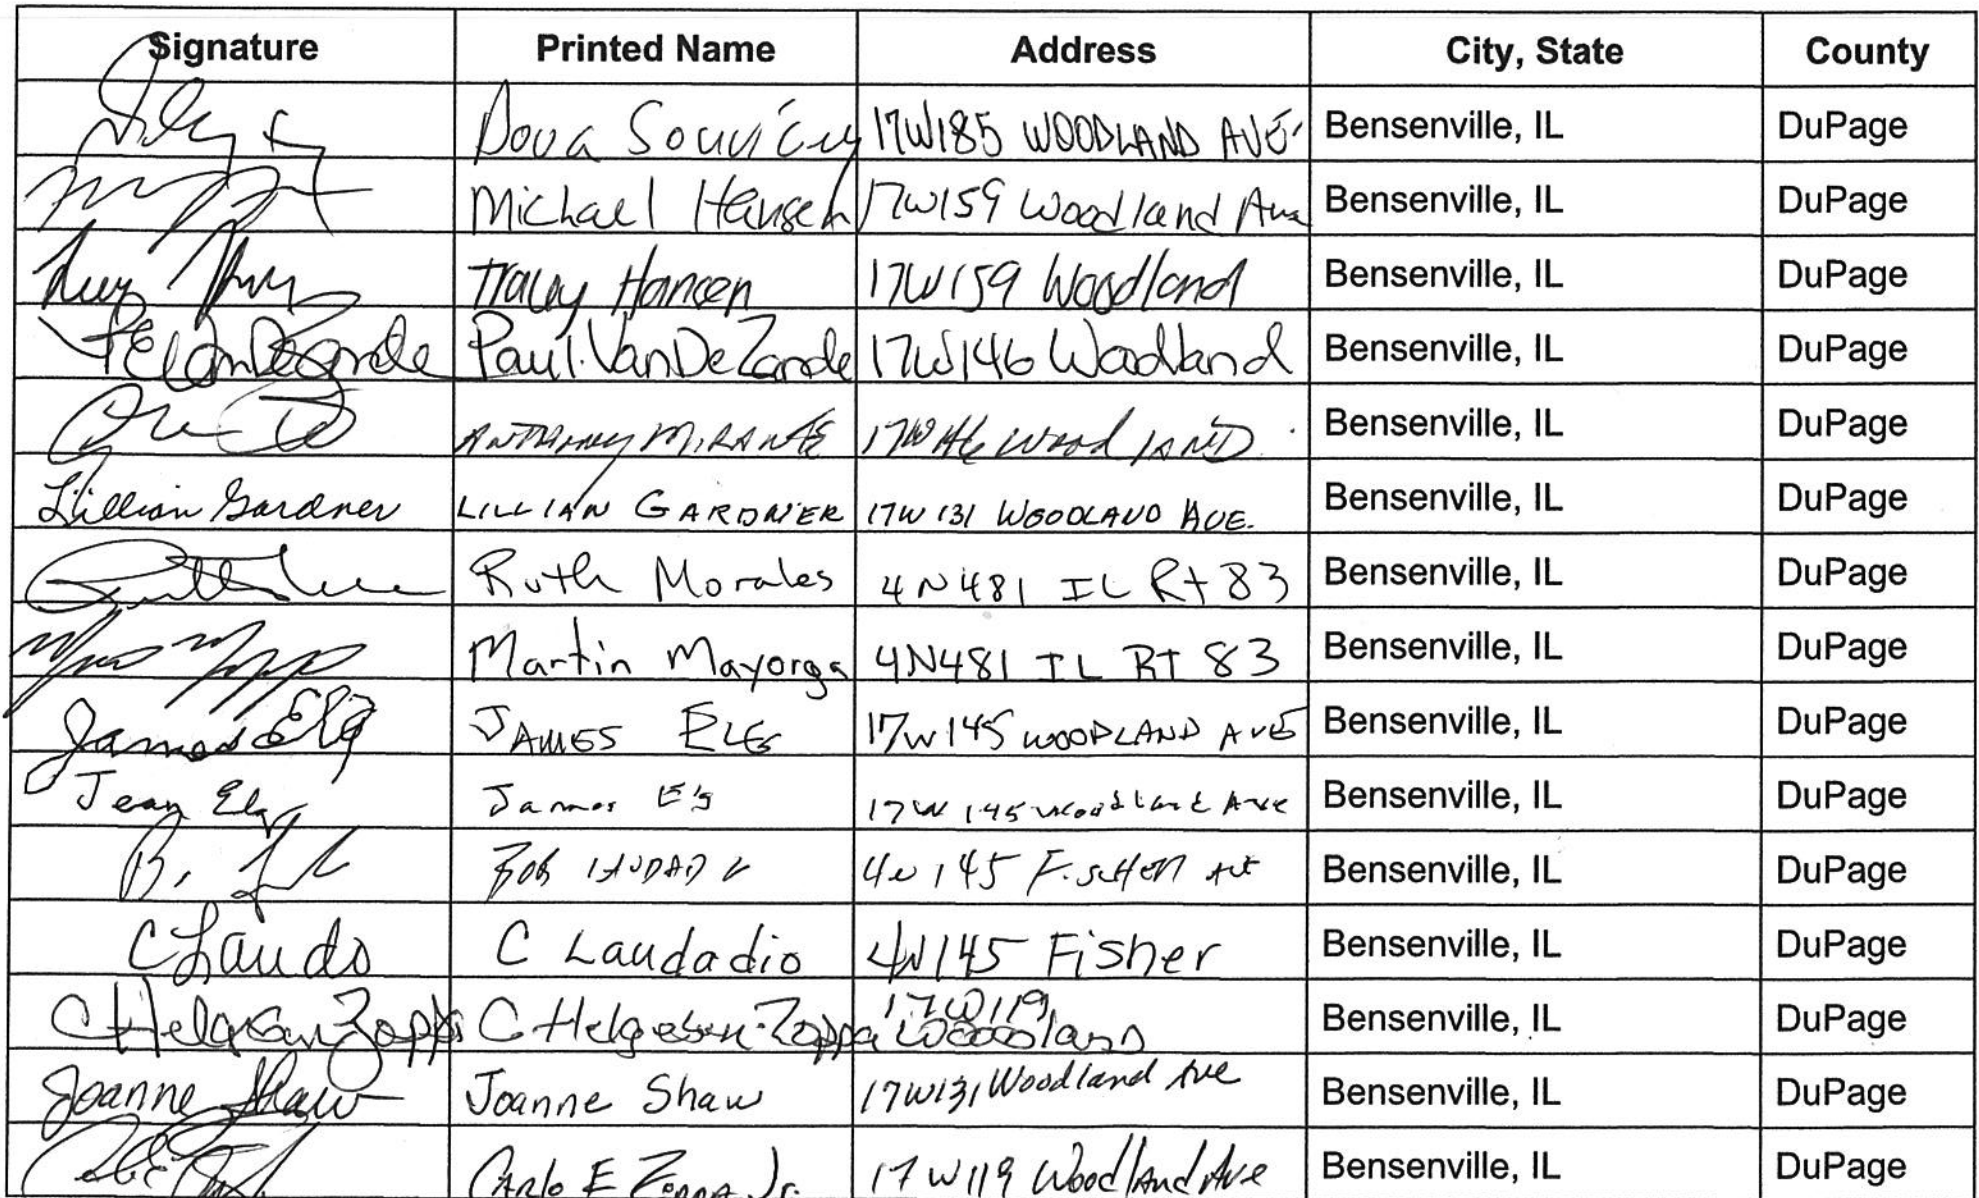 Signature Printed Name Address City, State County
Doug Souvi 17W185 WOODLAND AVE Bensenville, IL DuPage
Michael Hansen 17W159 Woodland Ave Bensenville, IL DuPage
Tracy Hansen 17W159 Woodland Bensenville, IL DuPage
PE VanDeZande Paul VanDeZande 17W146 Woodland Bensenville, IL DuPage
ANTHONY MIRANTE Woodland Bensenville, IL DuPage
Lillian Gardner LILLIAN GARDNER 17W131 WOODLAND AVE. Bensenville, IL DuPage
Ruth Morales 4N481 IL Rt 83 Bensenville, IL DuPage
Martin Mayorga 4N481 IL RT 83 Bensenville, IL DuPage
James Elg JAMES ELG 17W145 WOODLAND AVE Bensenville, IL DuPage
Jean Elg James Elg 17W145 Woodland Ave Bensenville, IL DuPage
B. BOB 145 Bensenville, IL DuPage
C Laudo C Laudadio 145 Fisher Bensenville, IL DuPage
C Helgesen Zoppa C Helgesen-Zoppa 17W119 Woodland Bensenville, IL DuPage
Joanne Shaw Joanne Shaw 17W131 Woodland Ave Bensenville, IL DuPage
Carlo E Zoppa Jr. 17W119 Woodland Ave Bensenville, IL DuPage